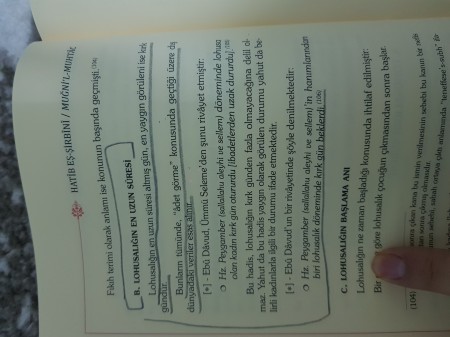 HATÎB EŞ-ŞİRBÎNÎ / MUĞNİ'L-MUHTÂC
Fıkıh terimi olarak anlamı ise konunun başında geçmişti.
B. LOHUSALIĞIN EN UZUN SÜRESİ
Lohusalığın en uzun süresi altmış gün, en yaygın görüleni ise kırk
gündür.
Bunların tümünde, "âdet görme" konusunda geçtiği üzere dış
dünyadaki veriler esas alınır.
[*] - Ebû Dâvud, Ümmü Seleme'den şunu rivâyet etmiştir:
Hz. Peygamber (sallallahu aleyhi ve sellem) döneminde lohusa
olan kadın kırk gün oturundu [ibadetlerden uzak dururdu].
Bu hadis, lohusalığın kırk günden fazla olmayacağına delil ol-
maz. Yahut da bu hadis yaygın olarak görülen durumu yahut da be-
lirli kadınlarla ilgili bir durumu ifade etmektedir.
[*] - Ebû Dâvud'un bir rivâyetinde şöyle denilmektedir:
Hz. Peygamber (sallallahu aleyhi ve sellem)'in hanımlarından
biri lohusalık döneminde kırk gün beklerdi.
C. LOHUSALIĞIN BAŞLAMA ANI
Lohusalığın ne zaman başladığı konusunda ihtilaf edilmiştir:
Bir göre lohusalık çocuğun çıkmasından sonra başlar.